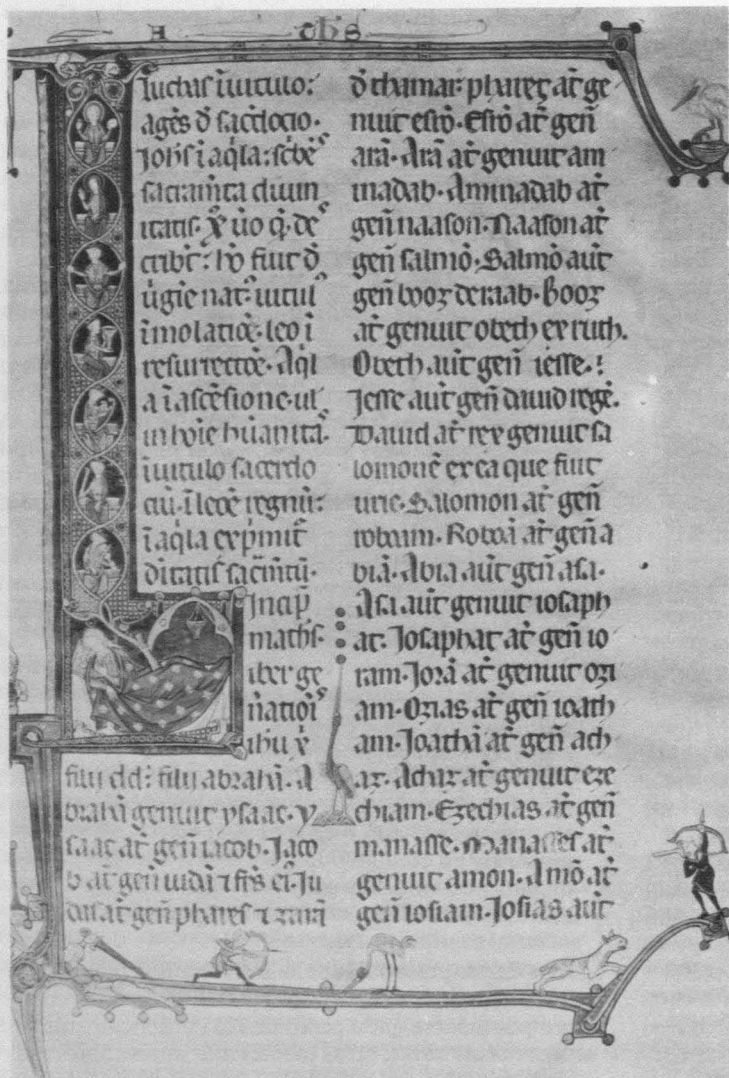 A thS
luchas ī uitulo:
agēs d̄ sac̄docio·
Joh̄s ī aq̄la: sc̄bē
sacram̄ta diuin
itatis· x̄ u̇o q̄· de
scribt̄: hō fuit d̄
ūgīe nat᷒: uitul᷒
ī molatiōe· leo ī
resurrectōe· Aq̄l
a ī ascēsione· ul᷒
in hoīe hūanita᷒
ī uitulo sacerdo
ciū· ī leōe regnū:
ī aq̄la exp̄mit᷒
d̄itatis sac̄m̄tū·
Incip̄
math̄s·
iber ge
n̄atiōī
ihū x̄
filii dd̄: filii abrahā· A
brahā genuit ysaac· y
saac at̄ gen̄ iacob· Jaco
b at̄ gen̄ iudā ⁊ fr̄s ei᷒· Ju
das at̄ gen̄ phares ⁊ zarā
d̄ thamar: phareç at̄ ge
nuit esrō· Esrō at̄ gen̄
arā· Arā at̄ genuit am
inadab· Aminadab at̄
gen̄ naason· Naason at̄
gen̄ salmō· Salmō aūt
gen̄ booz de raab· booz
at̄ genuit obeth ex ruth.
Obeth aūt gen̄ iesse·:
Jesse aūt gen̄ dauid regē.
Dauid at̄ rex genuit sa
lomonē ex ea que fuit
urie· Salomon at̄ gen̄
roboam· Roboā at̄ gen̄ a
biā· Abia aūt gen̄ asa·
Asa aūt genuit iosaph
at· Josaphat at̄ gen̄ io
ram· Jorā at̄ genuit ozi
am· Ozias at̄ gen̄ ioath
am· Joathā at̄ gen̄ ach
az· Achaz at̄ genuit eze
chiam· Ezechias at̄ gen̄
manasse· Manasses at̄
genuit amon· Amō at̄
gen̄ iosiam· Josias aūt